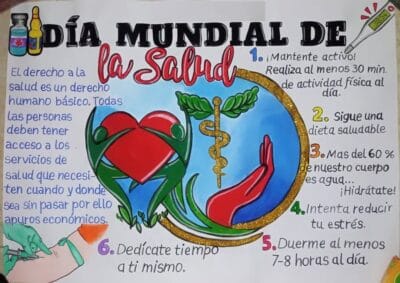 DÍA MUNDIAL DE
la Salud
El derecho a la
salud es un derecho
humano básico. Todas
las personas
deben tener
acceso a los
servicios de
salud que necesi-
ten cuando y donde
sea sin pasar por ello
apuros económicos.
1. ¡Mantente activo!
Realiza al menos 30 min.
de actividad física al
día.
2. Sigue una
dieta saludable
3. Mas del 60 %
de nuestro cuerpo
es agua...
¡Hidrátate!
4. Intenta reducir
tu estrés.
5. Duerme al menos
7-8 horas al día.
6. Dedícate tiempo
a ti mismo.